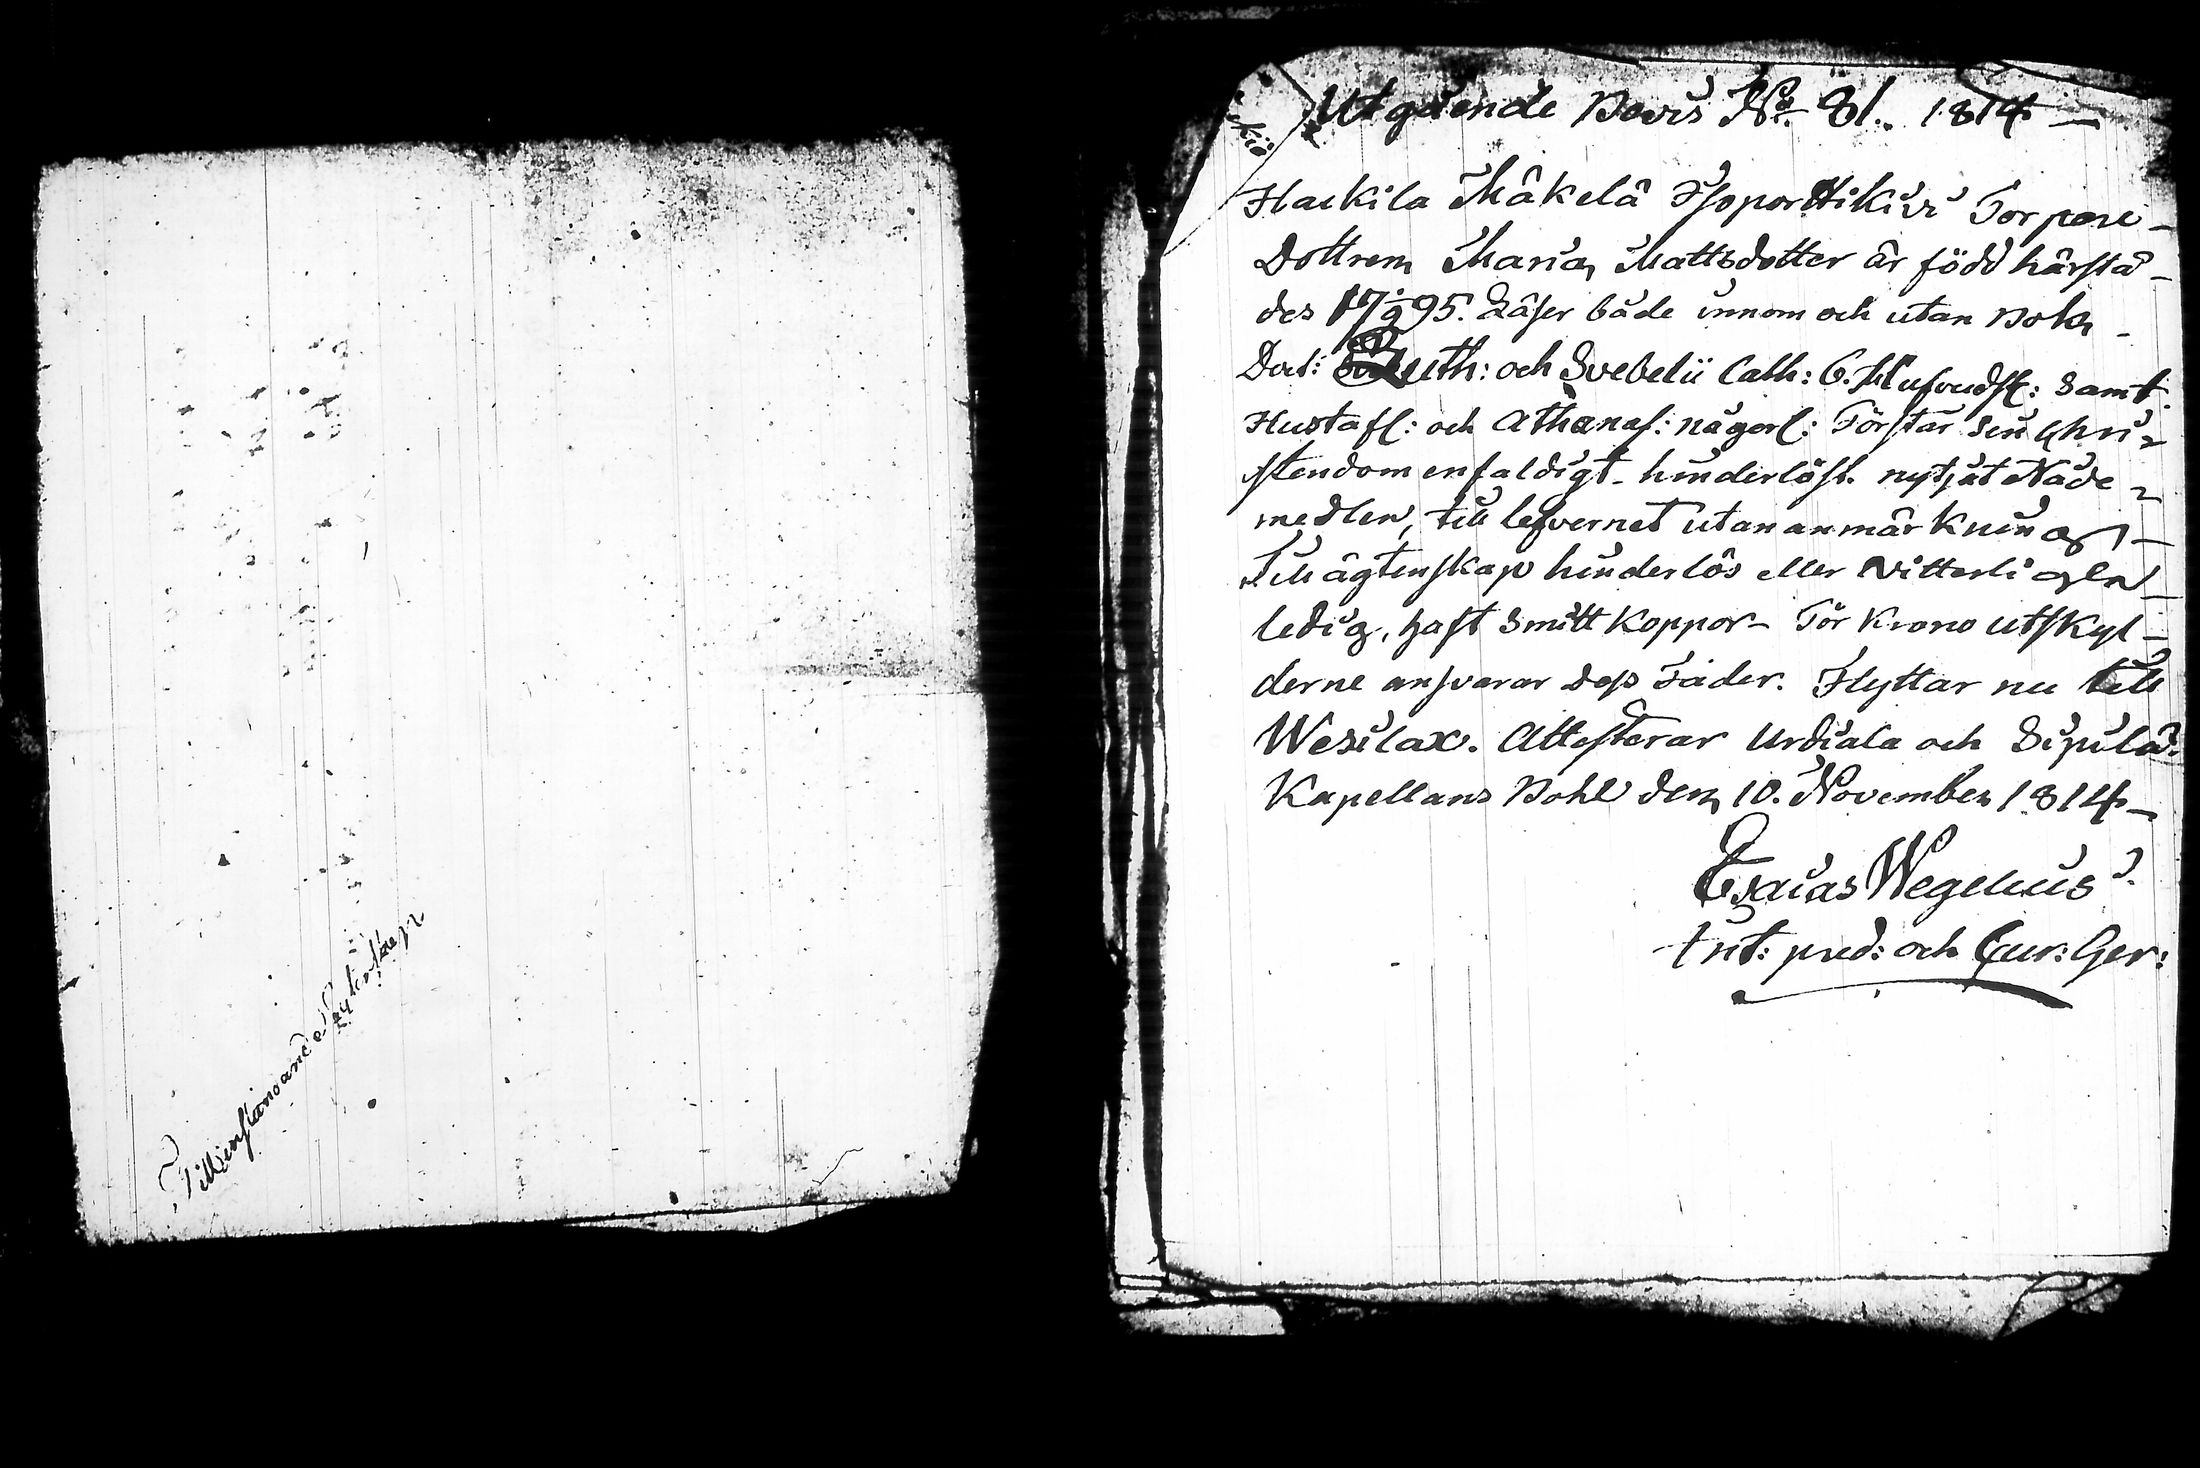 Utgående Bevis No. 81. 1814 —
Hackila Mäkelä Isoporttikivi Torpare-
Dottren Maria Mattsdotter är född härstä-
des 17/9 95. Läser både innom och utan Bok
Luth: och Svebelii Cath: G. Hufvudst: samt
Hustafl: och Athanas: någorl: Förstår sin Chri-
stendom enfaldigt. hinderlöst nytjat Nåde-
medlen, till lefvernet utan anmärkning —
Till ägtenskap hinderlös eller vitterligen
ledig, haft smittkoppor — För Krono utskyl-
derne ansvarar dess Fader. Flyttar nu till
Wesilax. Attesterar Urdiala och Sipilä
Kapellans Bohl den 10. November 1814 —
Esaias Wegelius
pred: och Cur: Ger:
Till ägtenskap